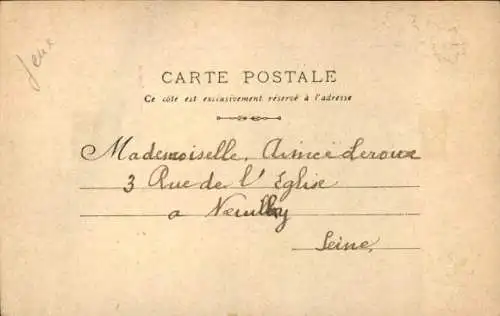 Jeux
CARTE POSTALE
Ce côté est exclusivement réservé à l'adresse
Mademoiselle, Aimée Leroux
3 Rue de l'Eglise
a Neuilly
Seine,